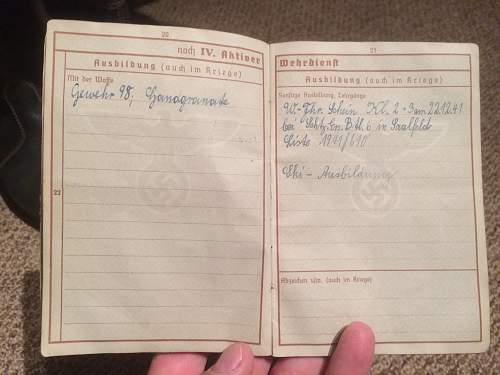 20
noch IV. Aktiver
Ausbildung (auch im Kriege)
Mit der Waffe
Gewehr 98, Handgranate
22
21
Wehrdienst
Ausbildung (auch im Kriege)
Sonstige Ausbildung, Lehrgänge
W.-Fhr. Schein Kl. 2 22.12.41
bei in Saalfeld
Liste 1941/610
Ski - Ausbildung
Abzeichen usw. (auch im Kriege)